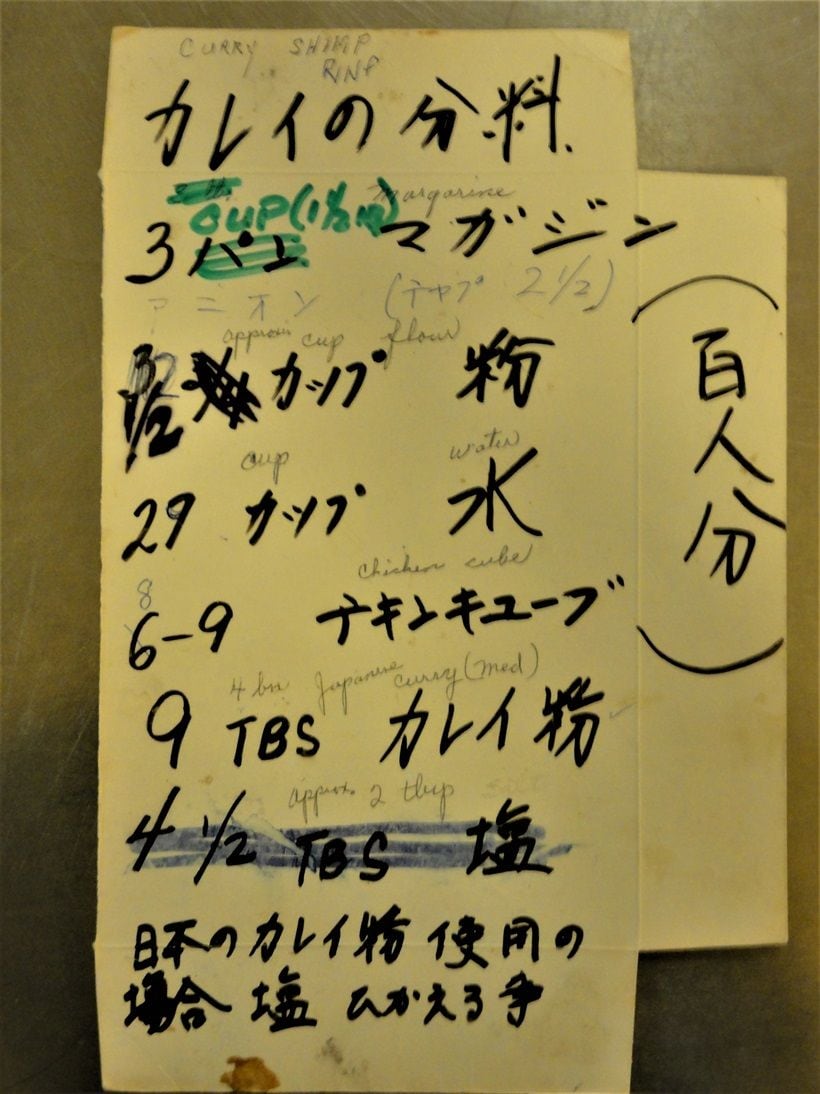 CURRY SHRIMP
カレイの分料.
margarine
CUP (1½ lb)
3 パン マガジン
アニオン (チャプ 2 1/2)
approx. cup flour
3 1/2 カップ 粉
cup water
29 カップ 水
chicken cube
8
6-9 チキンキューブ
4 bn Japanese curry (med)
9 TBS カレイ粉
approx. 2 tbsp salt
4 1/2 TBS 塩
日本のカレイ粉 使用の
場合 塩 ひかえる事
(百人分)